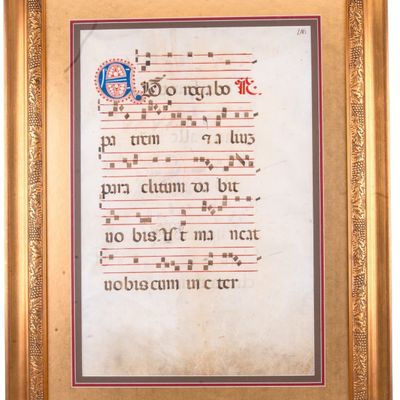 EGo rogabo R
pa trem & a liuz
para clitum da bit
uo bis. Ut ma neat
uobiscum in e ter